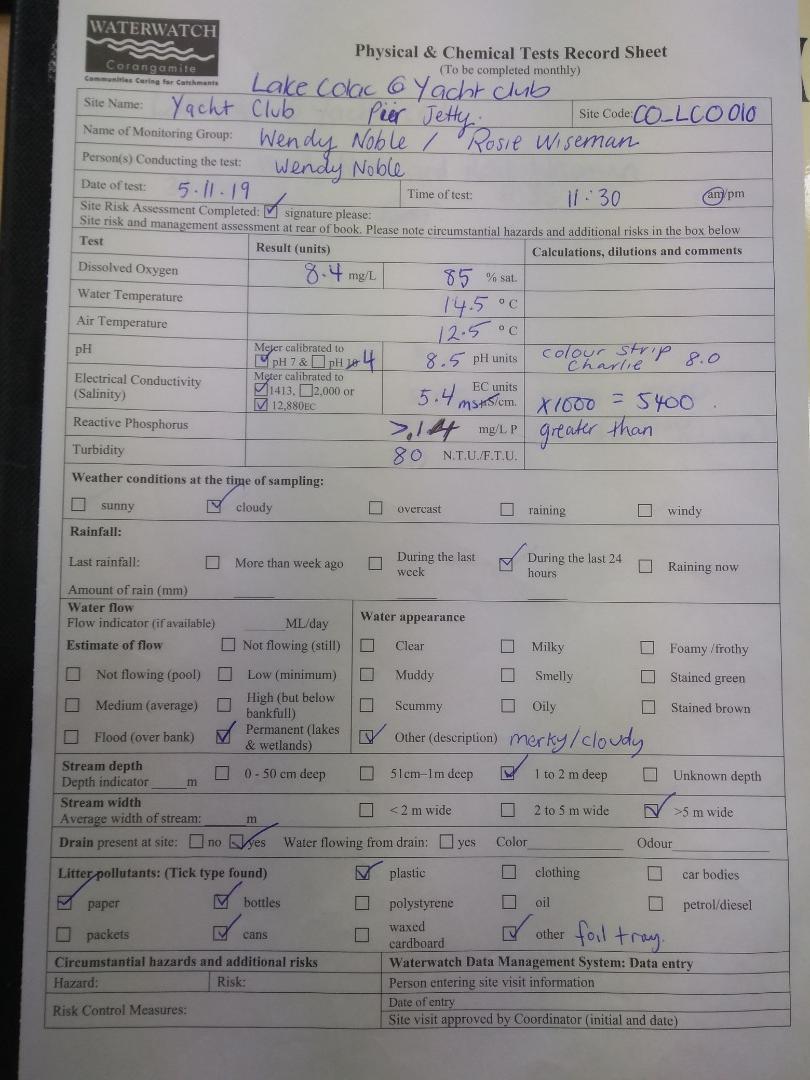 WATERWATCH
Corangamite
Communities Caring for Catchments
Physical & Chemical Tests Record Sheet
(To be completed monthly)
Lake Colac @ Yacht club
Site Name: Yacht Club Pier Jetty. Site Code: CO_LCO010
Name of Monitoring Group: Wendy Noble / Rosie Wiseman
Person(s) Conducting the test: Wendy Noble
Date of test: 5.11.19 Time of test: 11:30 am/pm
Site Risk Assessment Completed: signature please:
Site risk and management assessment at rear of book. Please note circumstantial hazards and additional risks in the box below
Test Result (units) Calculations, dilutions and comments
Dissolved Oxygen 8.4 mg/L 85 % sat.
Water Temperature 14.5 °C
Air Temperature 12.5 °C
pH Meter calibrated to pH 7 & pH 10 4 8.5 pH units colour strip Charlie 8.0
Electrical Conductivity (Salinity) Meter calibrated to 1413, 2,000 or 12,880EC 5.4 EC units ms µS/cm. x1000 = 5400.
Reactive Phosphorus >.14 mg/L P greater than
Turbidity 80 N.T.U./F.T.U.
Weather conditions at the time of sampling:
sunny cloudy overcast raining windy
Rainfall:
Last rainfall: More than week ago During the last week During the last 24 hours Raining now
Amount of rain (mm)
Water flow Water appearance
Flow indicator (if available) ML/day
Estimate of flow Not flowing (still) Clear Milky Foamy /frothy
Not flowing (pool) Low (minimum) Muddy Smelly Stained green
Medium (average) High (but below bankfull) Scummy Oily Stained brown
Flood (over bank) Permanent (lakes & wetlands) Other (description) merky/cloudy
Stream depth
Depth indicator m 0 - 50 cm deep 51cm-1m deep 1 to 2 m deep Unknown depth
Stream width
Average width of stream: m < 2 m wide 2 to 5 m wide >5 m wide
Drain present at site: no yes Water flowing from drain: yes Color Odour
Litter pollutants: (Tick type found) plastic clothing car bodies
paper bottles polystyrene oil petrol/diesel
packets cans waxed cardboard other foil tray.
Circumstantial hazards and additional risks Waterwatch Data Management System: Data entry
Hazard: Risk: Person entering site visit information
Risk Control Measures: Date of entry
Site visit approved by Coordinator (initial and date)